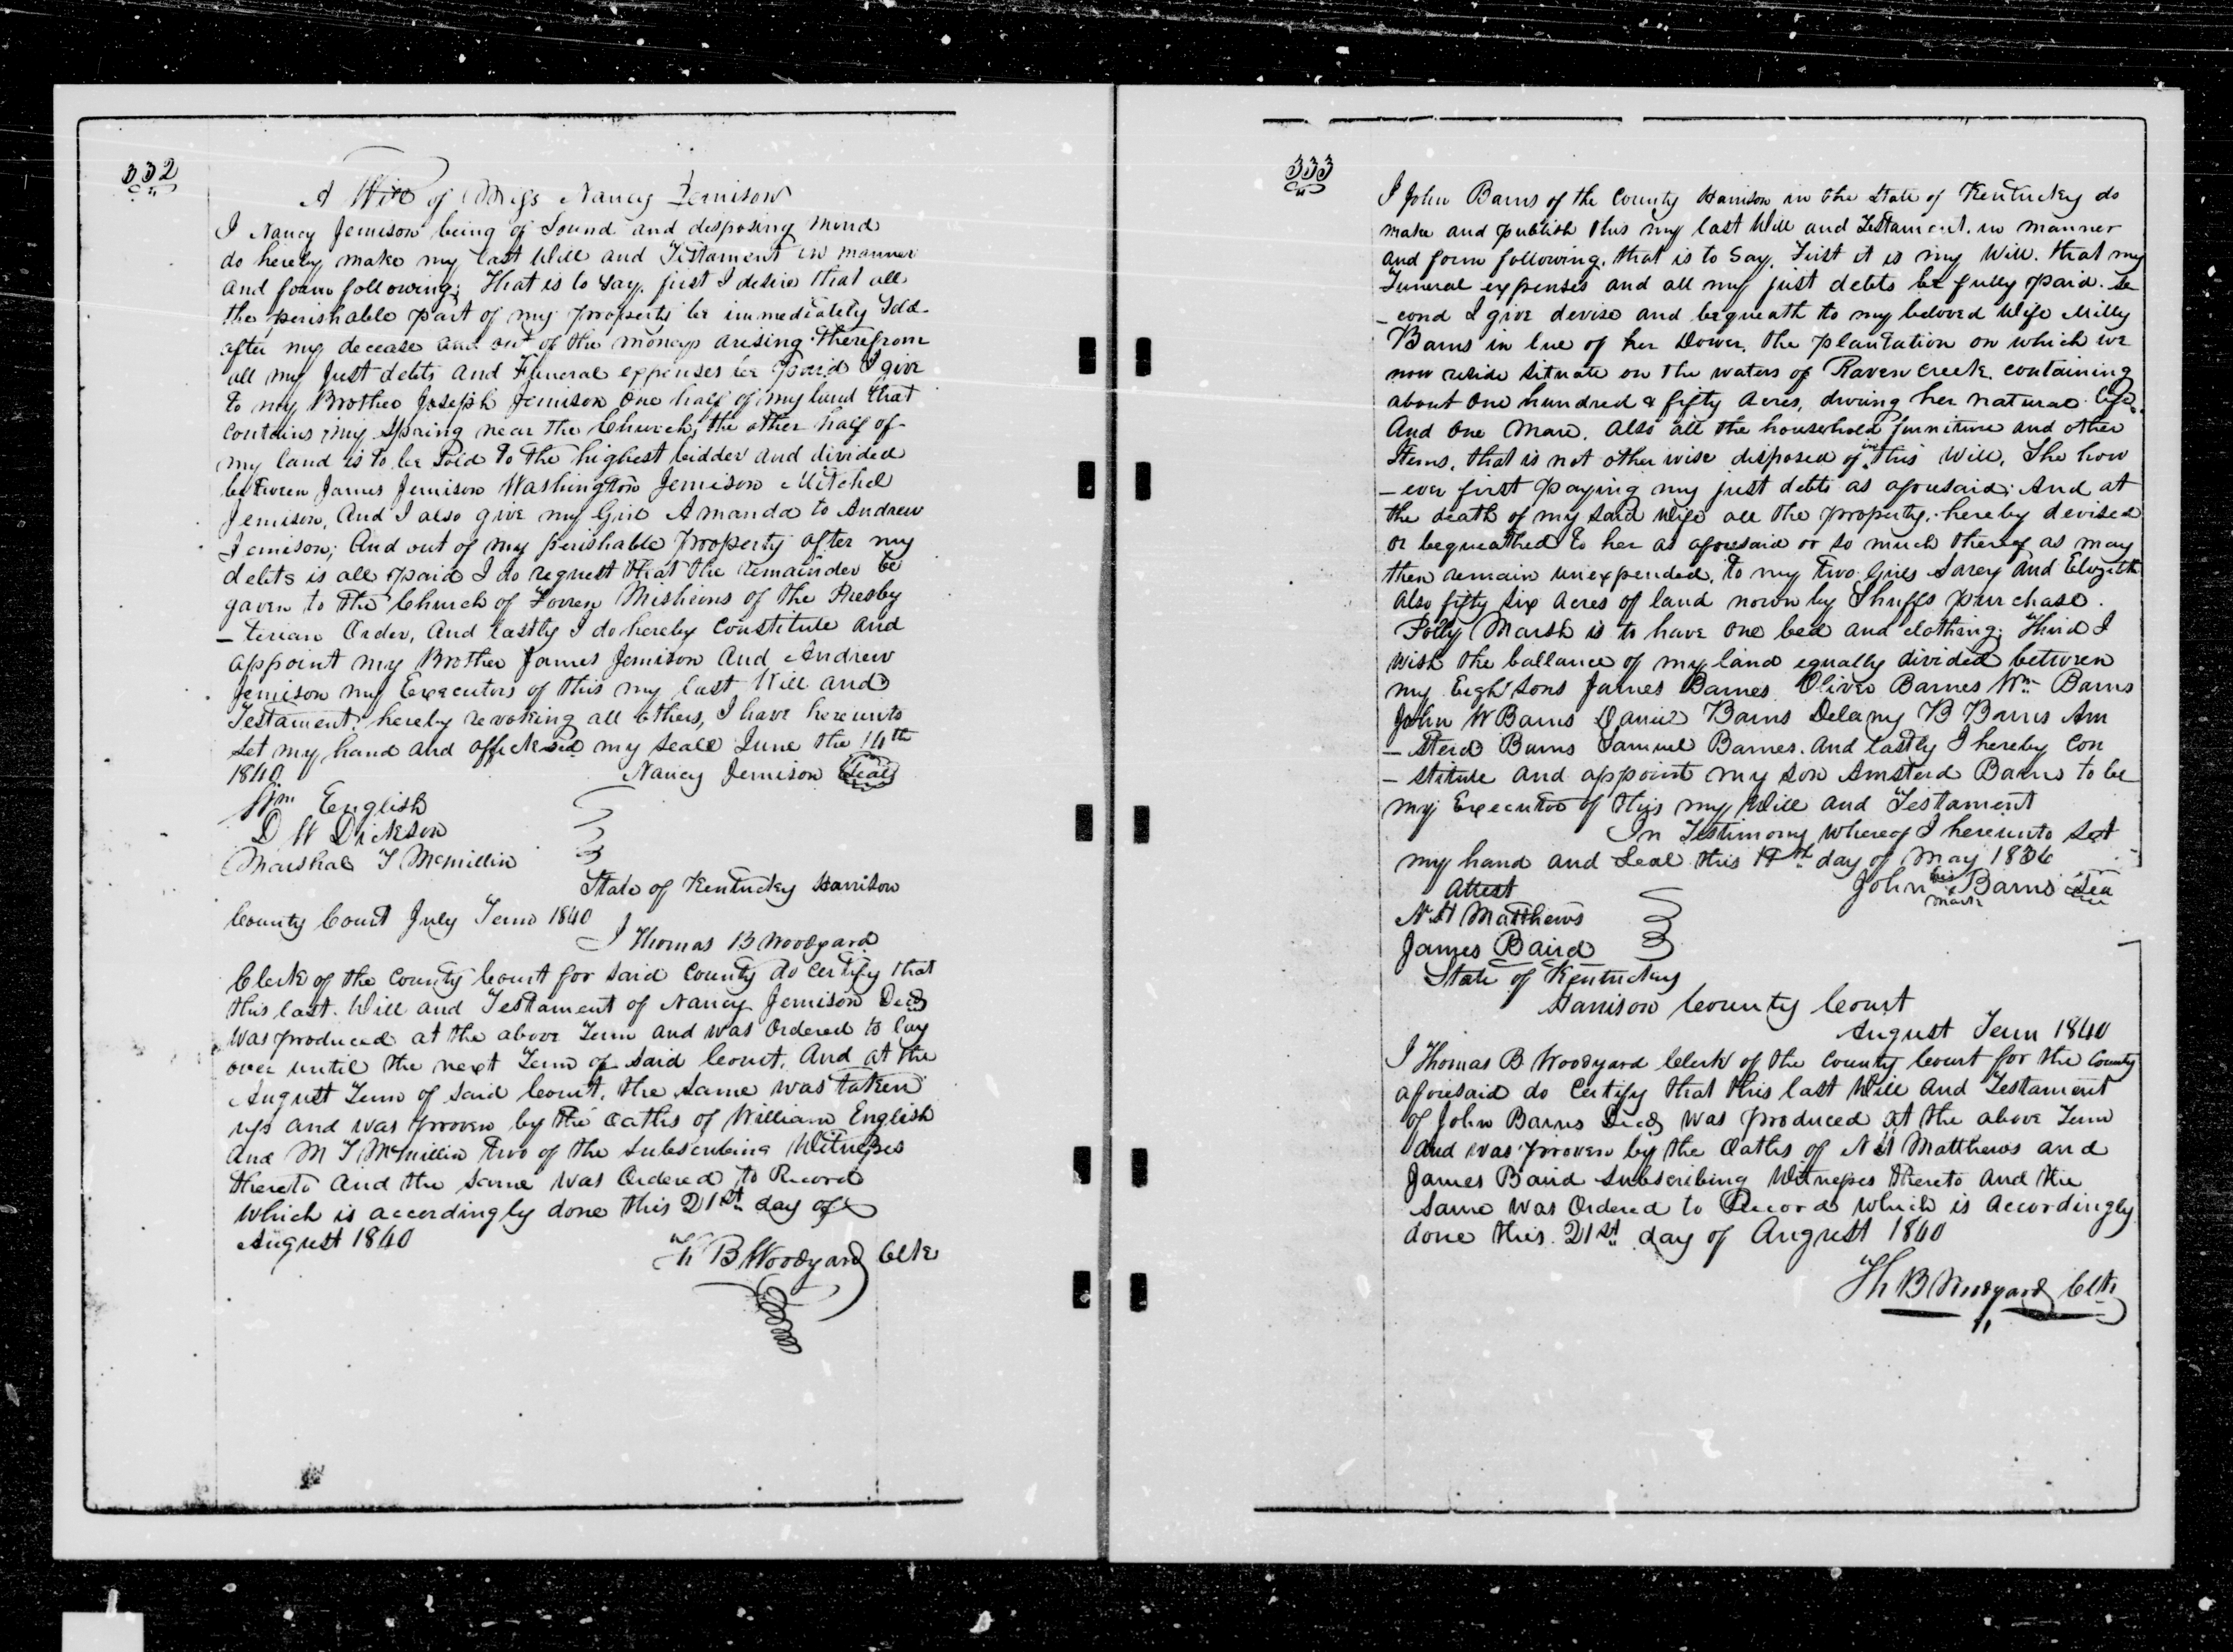 332
A Will of Miss Nancy Jemison
I Nancy Jemison being of Sound and disposing mind
do hereby make my last Will and Testament in manner
and form following; That is to say. first I desire that all
the perishable part of my property be immediately Sold
after my decease and out of the moneys arising therefrom
all my Just debts and Funeral expenses be paid I give
to my Brother Joseph Jemison One half of my land that
contains my Spring near the Church; the other half of
my land is to be Sold to the highest bidder and divided
between James Jemison Washington Jemison Mitchel
Jemison, And I also give my Girl Amanda to Andrew
Jemison; And out of my perishable property after my
debts is all paid I do request that the remainder be
gaven to the Church of Forren Misheons of the Presby
- terian Order, And lastly I do hereby constitute and
appoint my Brother James Jemison And Andrew
Jemison my Executors of this my last Will and
Testament. hereby revoking all others, I have hereunto
set my hand and afficksed my seall June the 14th
1840 Nancy Jemison Seal
Wm English
D W Dickson
Marshal T Mcmillin
State of Kentucky Harrison
County Court July Term 1840
I Thomas B Woodyard
Clerk of the County Court for said County do certify that
this last Will and Testament of Nancy Jemison Decd
was produced at the above Term and was Ordered to lay
over until the next Term of said Court, And at the
August Term of said Court, the same was taken
up and was proven by the oaths of William English
and M T Mcmillin two of the subscribing Witnesses
thereto and the same was Ordered to Record
which is accordingly done this 21st day of
August 1840
Th B Woodyard Clk
333
I John Barns of the County Harrison in the State of Kentucky do
make and publish this my last Will and Testament. in manner
and form following. that is to Say. First it is my Will. that my
Funeral expenses and all my just debts be fully paid. Se
- cond I give devise and bequeath to my beloved Wife Milly
Barns in lue of her Dower, the plantation on which we
now reside situate on the waters of Raven creek. containing
about One hundred & fifty Acres, during her natural life.
And One Mare. Also all the household furniture and other
Items, that is not other wise disposed of in this Will, She how
- ever first paying my just debts as aforesaid; And at
the death of my said Wife all the property, hereby devised
or bequeathed to her as aforesaid or so much thereof as may
then remain unexpended, to my two Girls Sarey and Elizabeth
Also fifty six Acres of land nown by Shuffs purchase.
Polly Marsh is to have one bed and clothing; Third I
wish the ballance of my land equally divided between
my Eight sons James Barnes Oliver Barnes Wm Barns
John W Barns Daniel Barns Delany B Barns Am
- sterd Barns Samuel Barnes. And lastly I hereby Con
- stitute and appoint my son Amsterd Barns to be
my Executor of this my Will and Testament
In Testimony whereof I hereunto set
my hand and Seal this 19th day of May 1836
Attest John his Barns Sea
mark
N H Matthews
James Baird
State of Kentucky
Harrison County Court
August Term 1840
I Thomas B Woodyard Clerk of the County Court for the County
aforesaid do certify that this last Will and Testament
of John Barns Decd was produced at the above Term
and was proven by the Oaths of N H Matthews and
James Baird subscribing Witnesses thereto and the
same was Ordered to Record which is accordingly
done this 21st day of August 1840
Th B Woodyard Clk